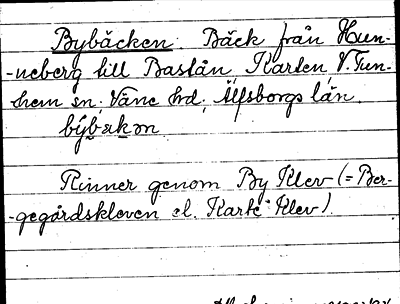 Bybäcken. Bäck från Hun-
-neberg till Bastån, Karten, V. Tun-
hem sn, Väne hd, Älfsborgs län.
býb-ækən
Rinner genom By Klev (= Ber-
-gegårdskleven el. Karte Klev).